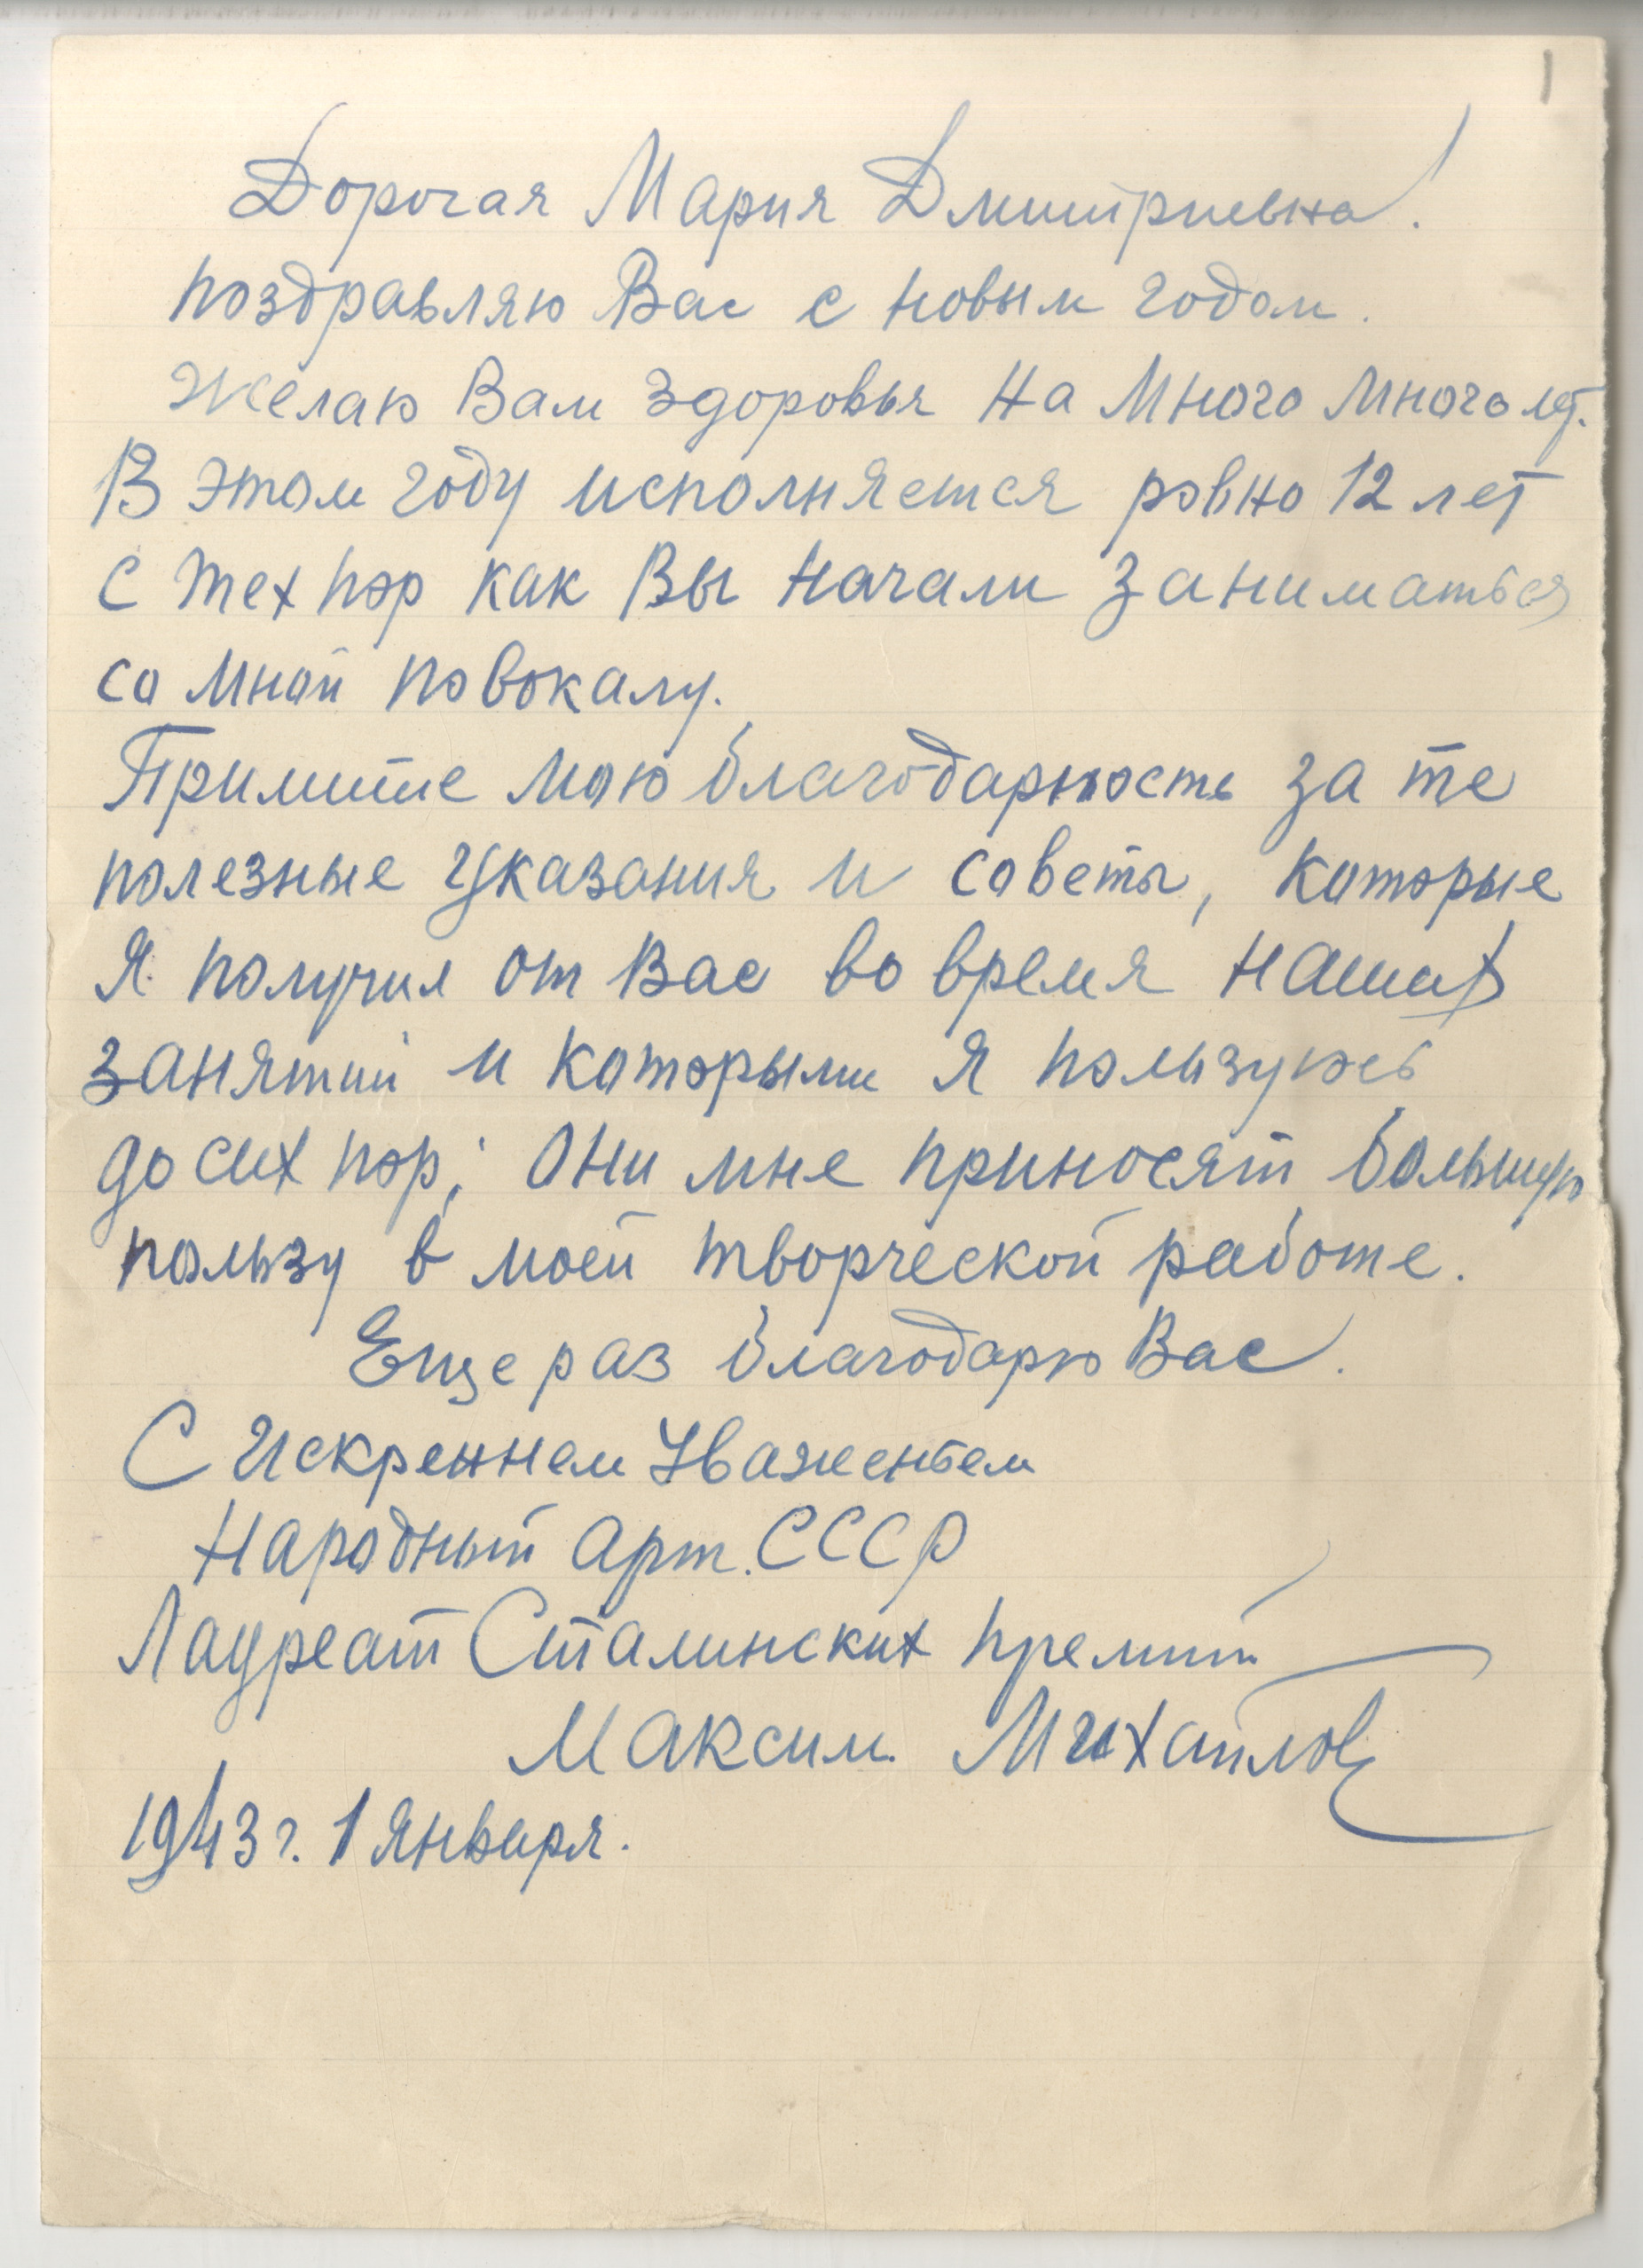 1
Дорогая Мария Дмитриевна!
поздравляю Вас с новым годом.
Желаю Вам здоровья на много много лет.
В этом году исполняется ровно 12 лет
с тех пор как Вы начали заниматься
со мной по вокалу.
Примите мою благодарность за те
полезные указания и советы, которые
я получил от Вас во время наших
занятий и которыми я пользуюсь
до сих пор; они мне приносят большую
пользу в моей творческой работе.
Еще раз благодарю Вас.
С искреннем уваженьем
Народный арт. СССР
Лауреат Сталинских премий
Максим Михайлов
1943 г. 1 января.